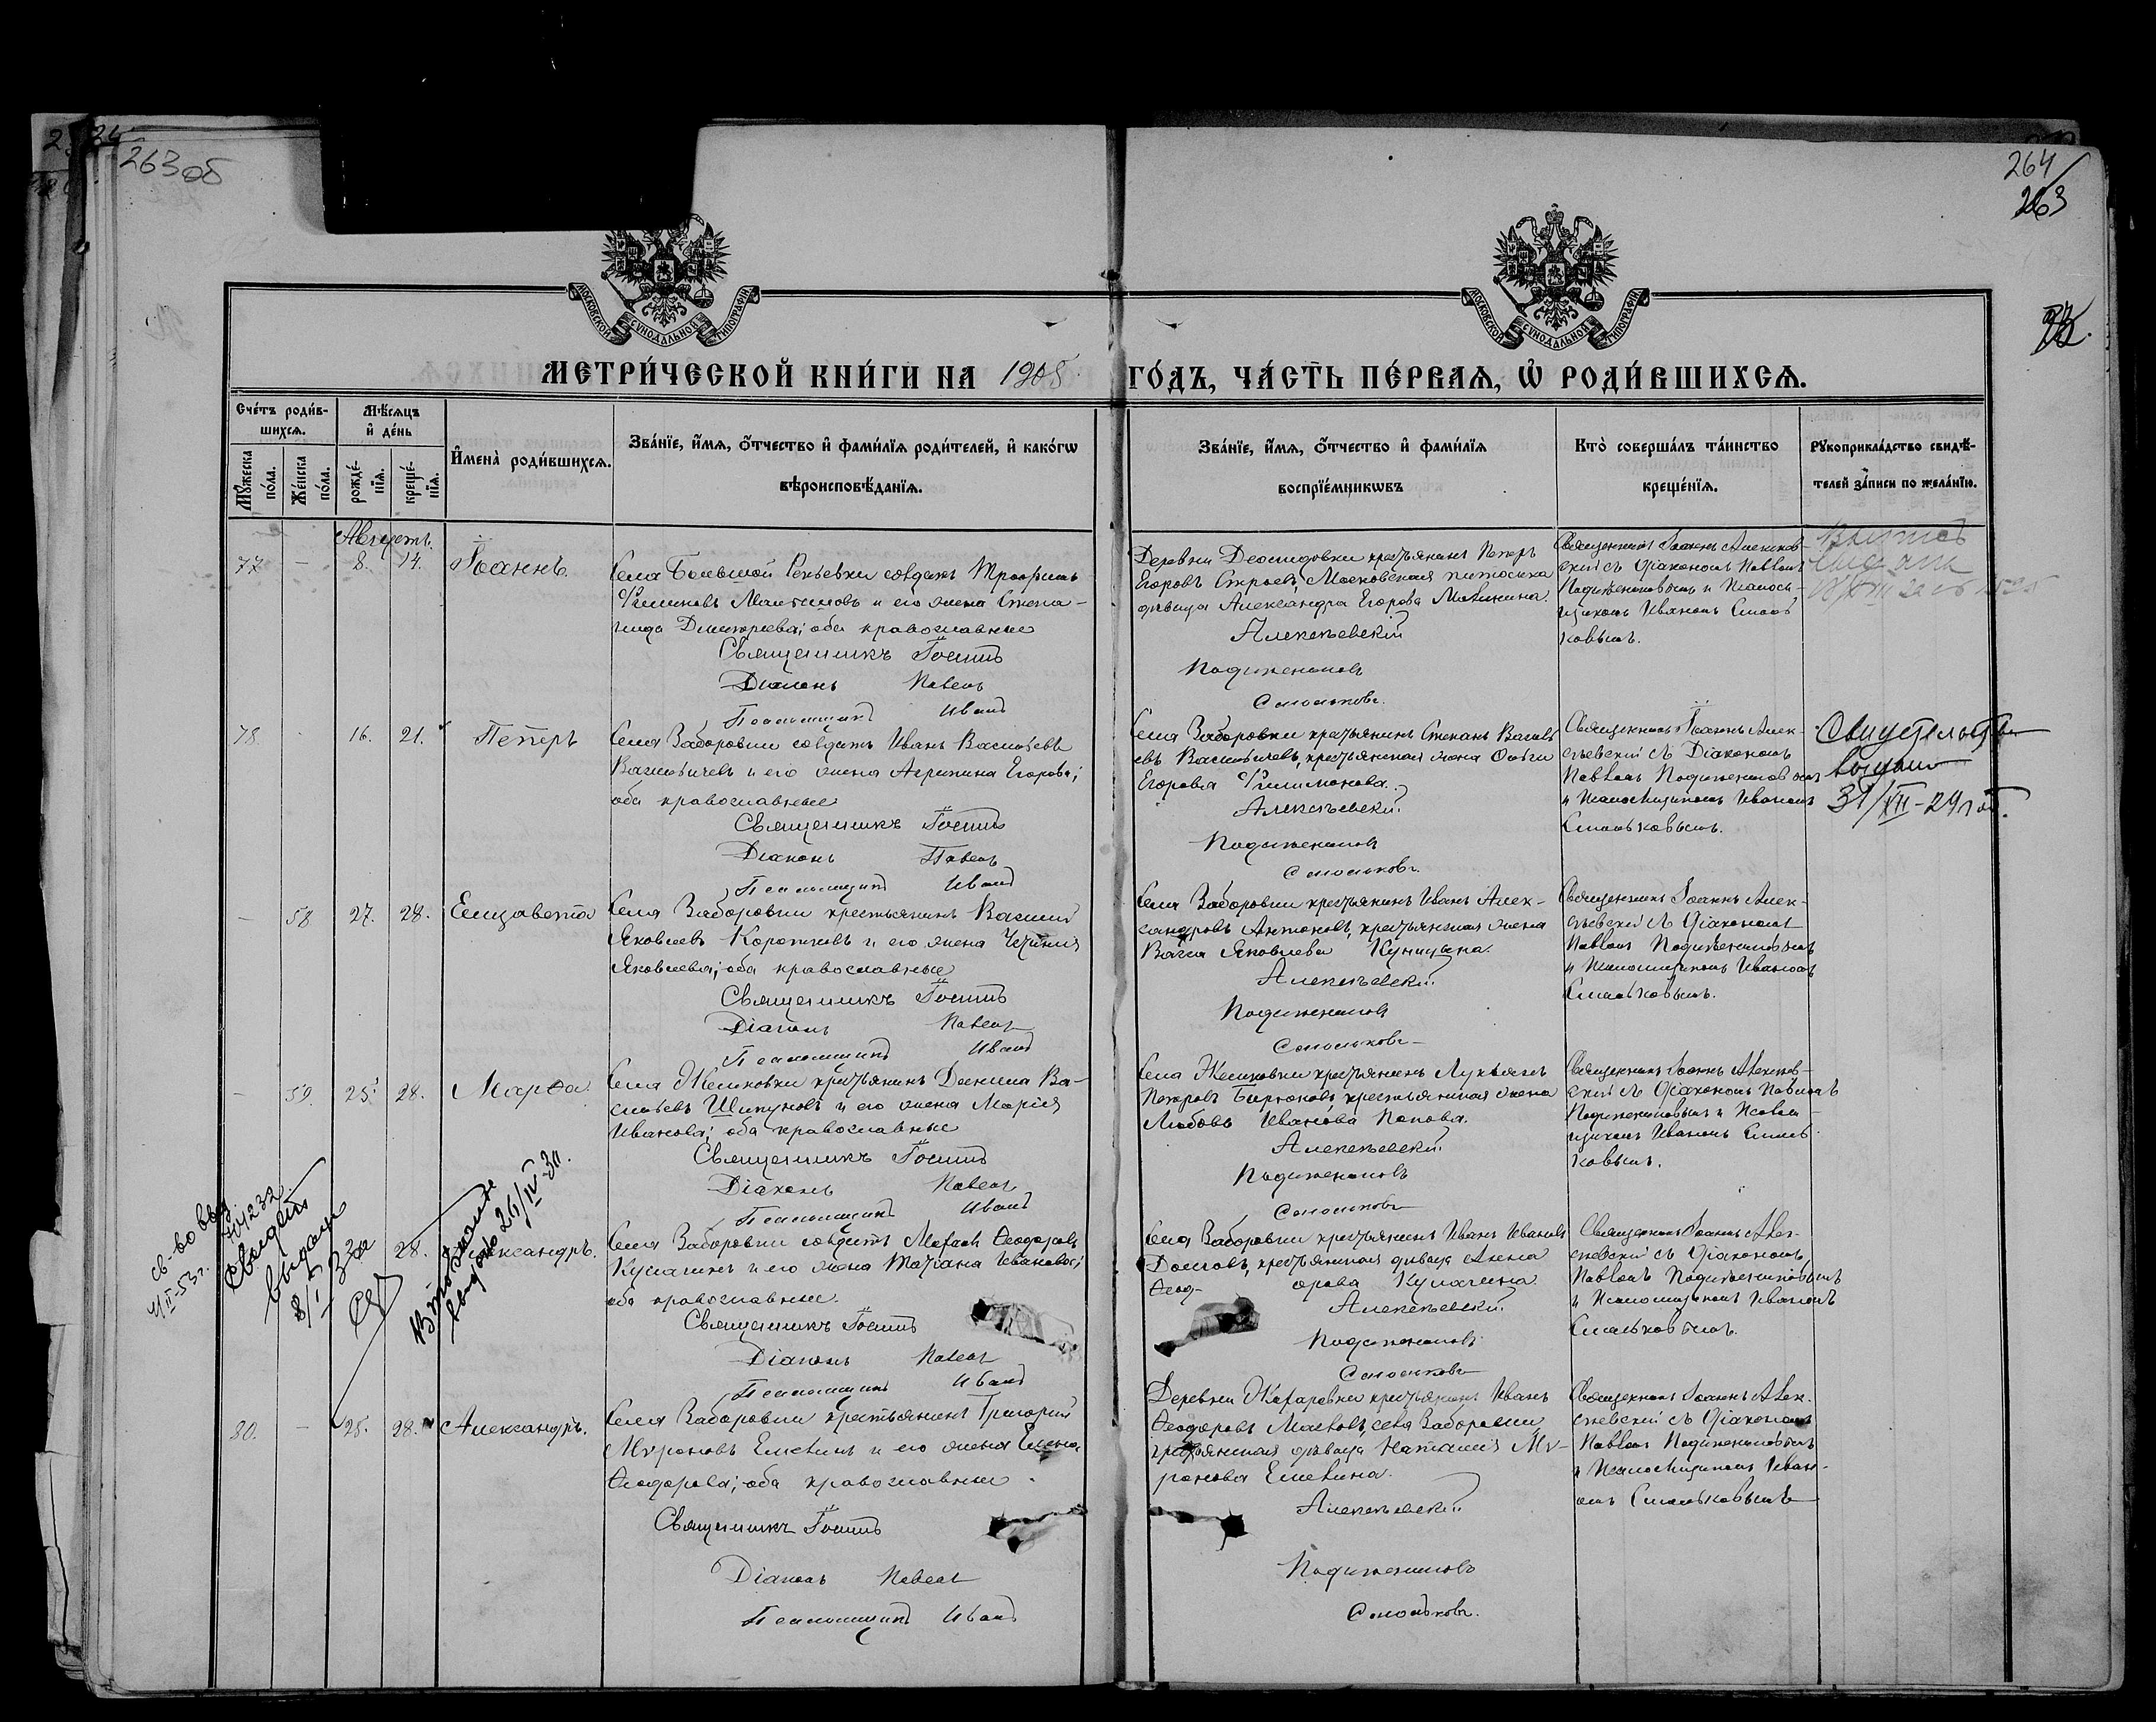 263 об
264
263
МОСКОВСКОЙ СѴНОДАЛЬНОЙ ТИПОГРАФІИ
МОСКОВСКОЙ СѴНОДАЛЬНОЙ ТИПОГРАФІИ
МЕТРИ́ЧЕСКОЙ КНИ́ГИ НА 1908 ГО́ДЪ, ЧА́СТЬ ПЕ́РВАЯ, Ѡ РОДИ́ВШИХСЯ.
Сче́тъ роди́в-
шихся.
Мѣ́сяцъ
и де́нь
Мꙋ́жеска по́ла.
Же́нска по́ла.
рожде́-
нїя.
креще́-
нїя.
Имена̀ роди́вшихся.
Зва́нїе, и́мя, ѻ́тчество и фами́лїя роди́телей, и како́гѡ
вѣроисповѣ́данїя.
Зва́нїе, и́мя, ѻ́тчество и фами́лїя
воспрїе́мникѡвъ
Кто̀ соверша́лъ та́инство
креще́нїя.
Рꙋкоприкла́дство свидѣ́-
телей за́писи по жела́нїю.
Августъ.
77 — 8. 14. Іоаннъ.
Села Большой Ретьевки солдатъ Трофимъ
Филиповъ Мантшовъ и его жена Степа-
нида Димитріева; оба православные
Священникъ Іоаннъ
Діаконъ Павелъ
Псаломщикъ Иванъ
Деревни Деомидовки крестьянинъ Петръ
Егоровъ Строевъ, Московская питомка
дѣвица Александра Егорова
Алексѣевскій
Подлиженновъ
Смольковъ.
Священникъ Іоаннъ Алексѣев-
скій съ Діакономъ Павломъ
и Псалом-
щикомъ Иваномъ Смоль
ковымъ.
78. 16. 21. Петръ
Села Заборовки солдатъ Иванъ Васильевъ
Василичевъ и его жена Агрипина Егорова;
оба православные
Священникъ Іоаннъ
Діаконъ Павелъ
Псаломщикъ Иванъ
Села Заборовки крестьянинъ Степанъ Василь
евъ Василичевъ, крестьянская жена Ольга
Егорова Филимонова.
Алексѣевскій
Подлиженновъ
Смольковъ.
Священникъ Іоаннъ Алек-
сѣевскій съ Діакономъ
Павломъ
и Псаломщикомъ Иваномъ
Смольковымъ.
Свидетельство
выдано
31/XII-29 г
— 58 27. 28. Елизавета
Села Заборовки крестьянинъ Василий
Яковлевъ Коротковъ и его жена
Яковлева; оба православные
Священникъ Іоаннъ
Діаконъ Павелъ
Псаломщикъ Иванъ
Села Заборовки крестьянинъ Иванъ Алек-
сандровъ Антоновъ, крестьянская жена
Васса Яковлева Куницына.
Алексѣевскій
Подлиженновъ
Смольковъ
Священникъ Іоаннъ Алек-
сѣевскій съ Діакономъ
Павломъ
и Псаломщикомъ Иваномъ
Смольковымъ.
— 59. 25. 28. Марѳа
Села Жемковки крестьянинъ Данила Ва-
сильевъ Шипуновъ и его жена Марія
Иванова; оба православные
Священникъ Іоаннъ
Діаконъ Павелъ
Псаломщикъ Иванъ
Села Жемковки крестьянинъ Лукьянъ
Петровъ Бирюковъ, крестьянская жена
Любовь Иванова Попова.
Алексѣевскій
Подлиженновъ
Смольковъ
Священникъ Іоаннъ Алексѣев-
скій съ Діакономъ Павломъ
и Псалом-
щикомъ Иваномъ Смоль-
ковымъ.
св-во выд
4/II-53г.
Свидет
выдан
8/I-32г
Вторично
выдано 26/IV-30.
28. Александръ.
Села Заборовки солдатъ Ѳеодоровъ
Кулагинъ и его жена Татіана Иванова;
оба православные.
Священникъ Іоаннъ
Діаконъ Павелъ
Псаломщикъ Иванъ
Села Заборовки крестьянинъ Иванъ Ивановъ
Долговъ, крестьянская дѣвица Анна
Ѳеод- орова Кулагина
Алексѣевскій
Подлиженновъ
Смольковъ
Священникъ Іоаннъ Алек-
сѣевскій съ Діакономъ
Павломъ
и Псаломщикомъ Иваномъ
Смольковымъ.
80. — 25. 28. Александръ.
Села Заборовки крестьянинъ Григорій
Мироновъ Емелинъ и его жена Елена
Ѳеодорова; оба православные
Священникъ Іоаннъ
Діаконъ Павелъ
Псаломщикъ Иванъ
Деревни крестьянинъ Иванъ
Ѳеодоровъ села Заборовки
крестьянская дѣвица Наталія Ми-
ронова Емелина.
Алексѣевскій
Подлиженновъ
Смольковъ.
Священникъ Іоаннъ Алек-
сѣевскій съ Діакономъ
Павломъ
и Псаломщикомъ Иван-
омъ Смольковымъ